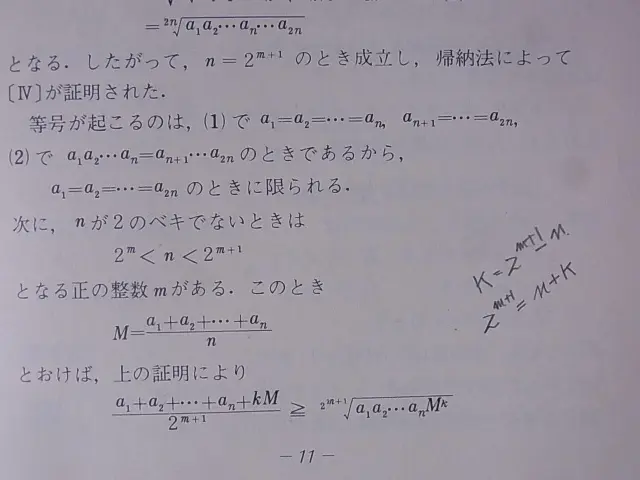 = ²ⁿ√(a₁a₂⋯aₙ⋯a₂ₙ)
となる．したがって，n＝2^{m+1} のとき成立し，帰納法によって
〔Ⅳ〕が証明された．
等号が起こるのは，(1)で a₁=a₂=⋯=aₙ, aₙ₊₁=⋯=a₂ₙ,
(2)で a₁a₂⋯aₙ=aₙ₊₁⋯a₂ₙ のときであるから，
a₁=a₂=⋯=a₂ₙ のときに限られる．
次に，n が 2 のベキでないときは
2^m < n < 2^{m+1}
となる正の整数 m がある．このとき
M= (a₁+a₂+⋯+aₙ)/n
とおけば，上の証明により
(a₁+a₂+⋯+aₙ+kM)/2^{m+1} ≧ ^{2^{m+1}}√(a₁a₂⋯aₙM^k)
K=2^{m+1}-n.
2^{m+1}=n+K
— 11 —